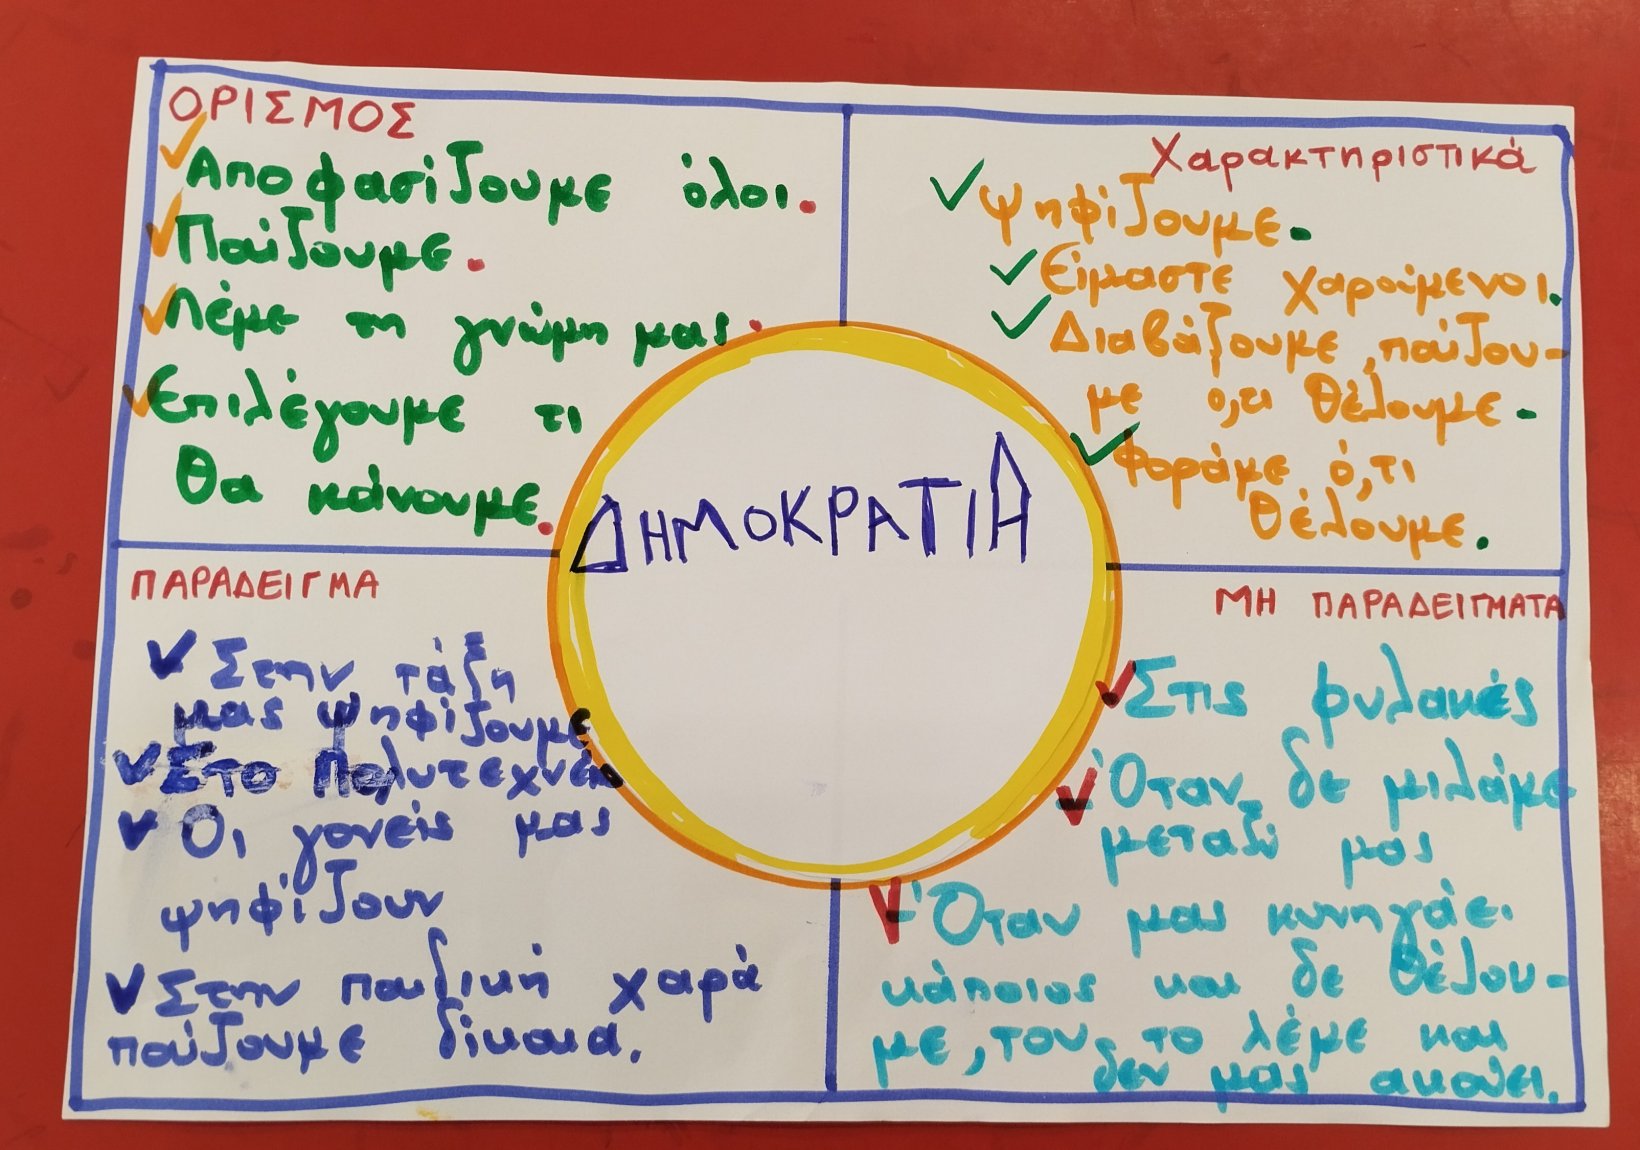 ΟΡΙΣΜΟΣ
Αποφασίζουμε όλοι.
Παίζουμε.
Λέμε τη γνώμη μας.
Επιλέγουμε τι
θα κάνουμε.
Χαρακτηριστικά
Ψηφίζουμε.
Είμαστε χαρούμενοι.
Διαβάζουμε, παίζου-
με ό,τι θέλουμε.
Φοράμε ό,τι
θέλουμε.
ΔΗΜΟΚΡΑΤΙΑ
ΠΑΡΑΔΕΙΓΜΑ
Στην τάξη
μας ψηφίζουμε
Στο Πολυτεχνείο
Οι γονείς μας
ψηφίζουν
Στην παιδική χαρά
παίζουμε δίκαια.
ΜΗ ΠΑΡΑΔΕΙΓΜΑΤΑ
Στις φυλακές
Όταν δε μιλάμε
μεταξύ μας
Όταν μας κυνηγάει
κάποιος και δε θέλου-
με, του το λέμε και
δεν μας ακούει.